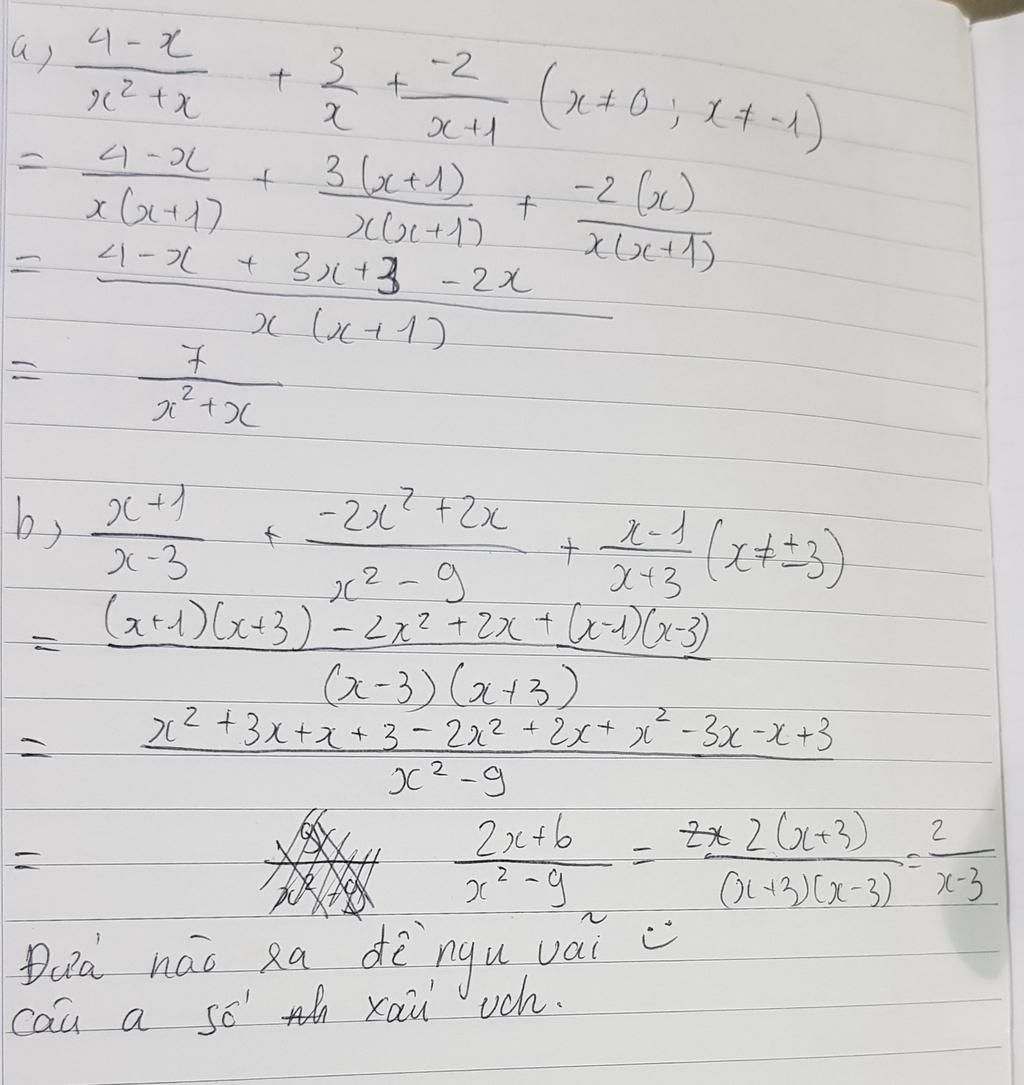 a, (4-x)/(x²+x) + 3/x + -2/(x+1) (x≠0; x≠-1)
= (4-x)/(x(x+1)) + 3(x+1)/(x(x+1)) + -2(x)/(x(x+1))
= (4-x + 3x+3 -2x)/(x(x+1))
= 7/(x²+x)
b, (x+1)/(x-3) + (-2x²+2x)/(x²-9) + (x-1)/(x+3) (x≠±3)
= ((x+1)(x+3) - 2x² + 2x + (x-1)(x-3))/((x-3)(x+3))
= (x²+3x+x+3-2x²+2x+x²-3x-x+3)/(x²-9)
= (2x+6)/(x²-9) = 2(x+3)/((x+3)(x-3)) = 2/(x-3)
Đứa nào ra đề ngu vãi
câu a số xấu vch.